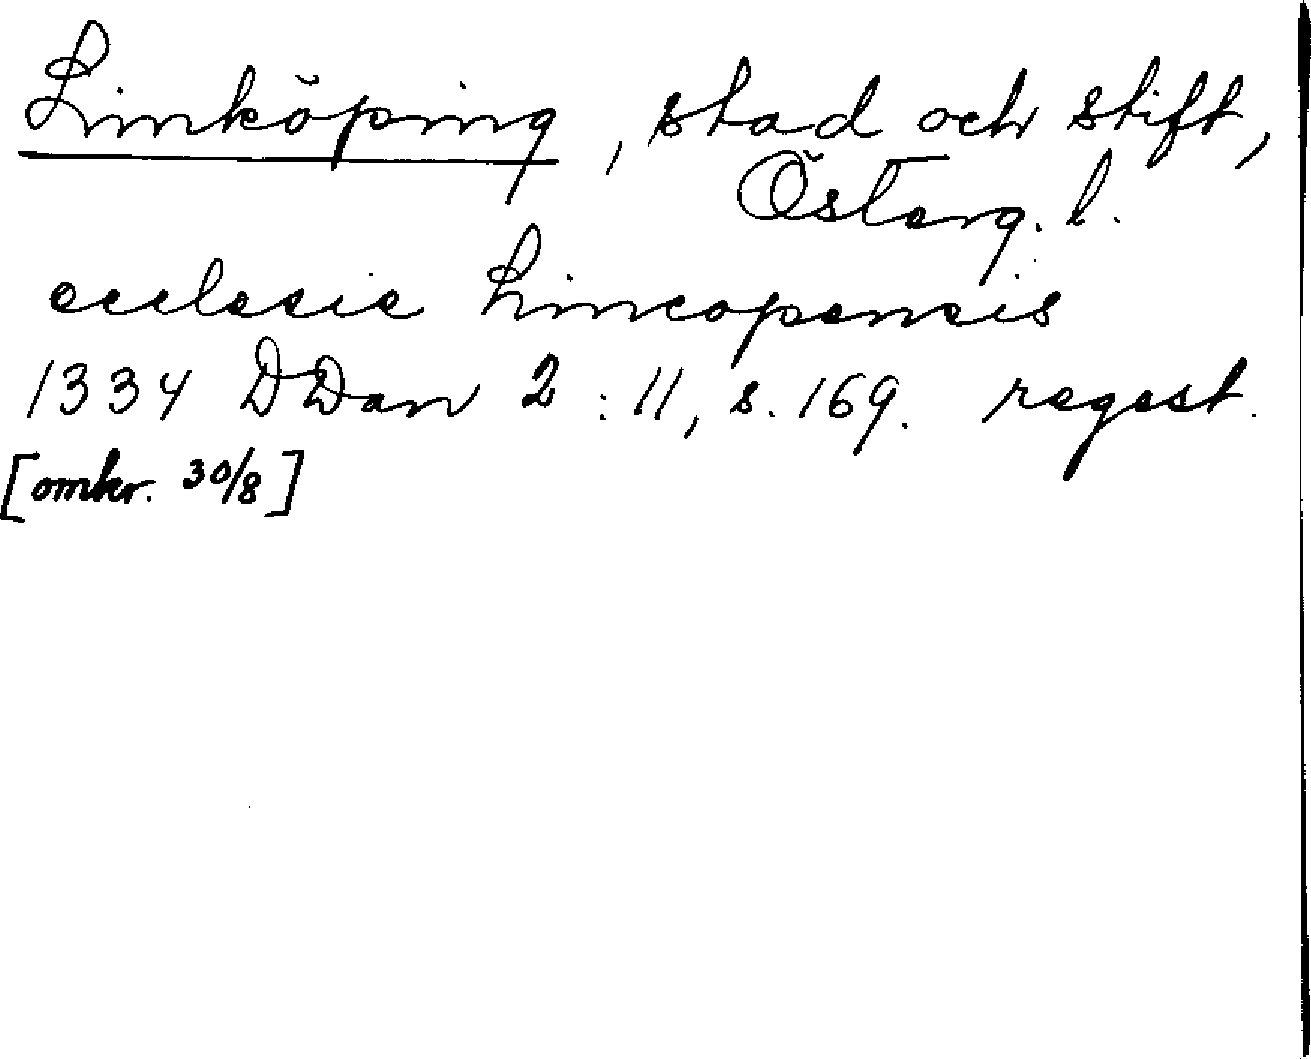 Linköping, stad och stift,
Österg. l.
ecclesie Lincopensis
1334 DDan 2:11, s. 169. regest.
[omkr. 30/8]